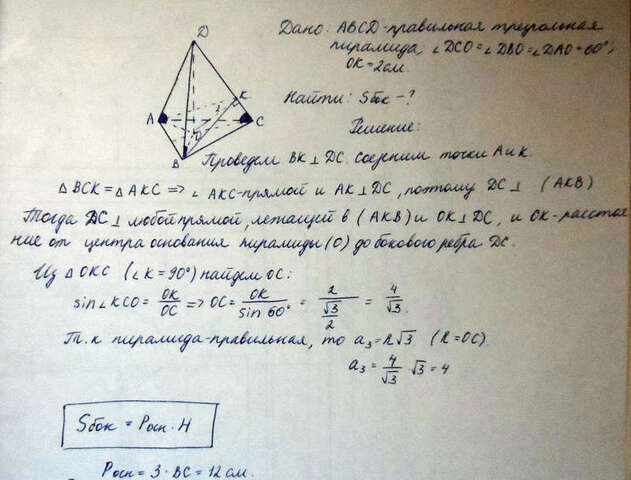 Дано: ABCD-правильная треугольная
пирамида; ∠DCO=∠DBO=∠DAO=60°;
OK=2см.
Найти: Sбок-?
Решение:
D
K
2
A
C
O
B
Проведем BK⊥DC. Соединим точки A и K.
△BCK=△AKC => ∠AKC-прямой и AK⊥DC, поэтому DC⊥ (AKB)
Тогда DC⊥любой прямой, лежащей в (AKB) и OK⊥DC, и OK-расстоя
ние от центра основания пирамиды (O) до бокового ребра DC.
Из △OKC (∠K=90°) найдем OC:
sin∠KCO= OK/OC => OC= OK/sin60° = 2/(√3/2) = 4/√3.
Т.к пирамида-правильная, то a₃=R√3 (R=OC)
a₃= 4/√3 · √3 = 4
Sбок = Pосн · H
Pосн = 3 · BC = 12см.